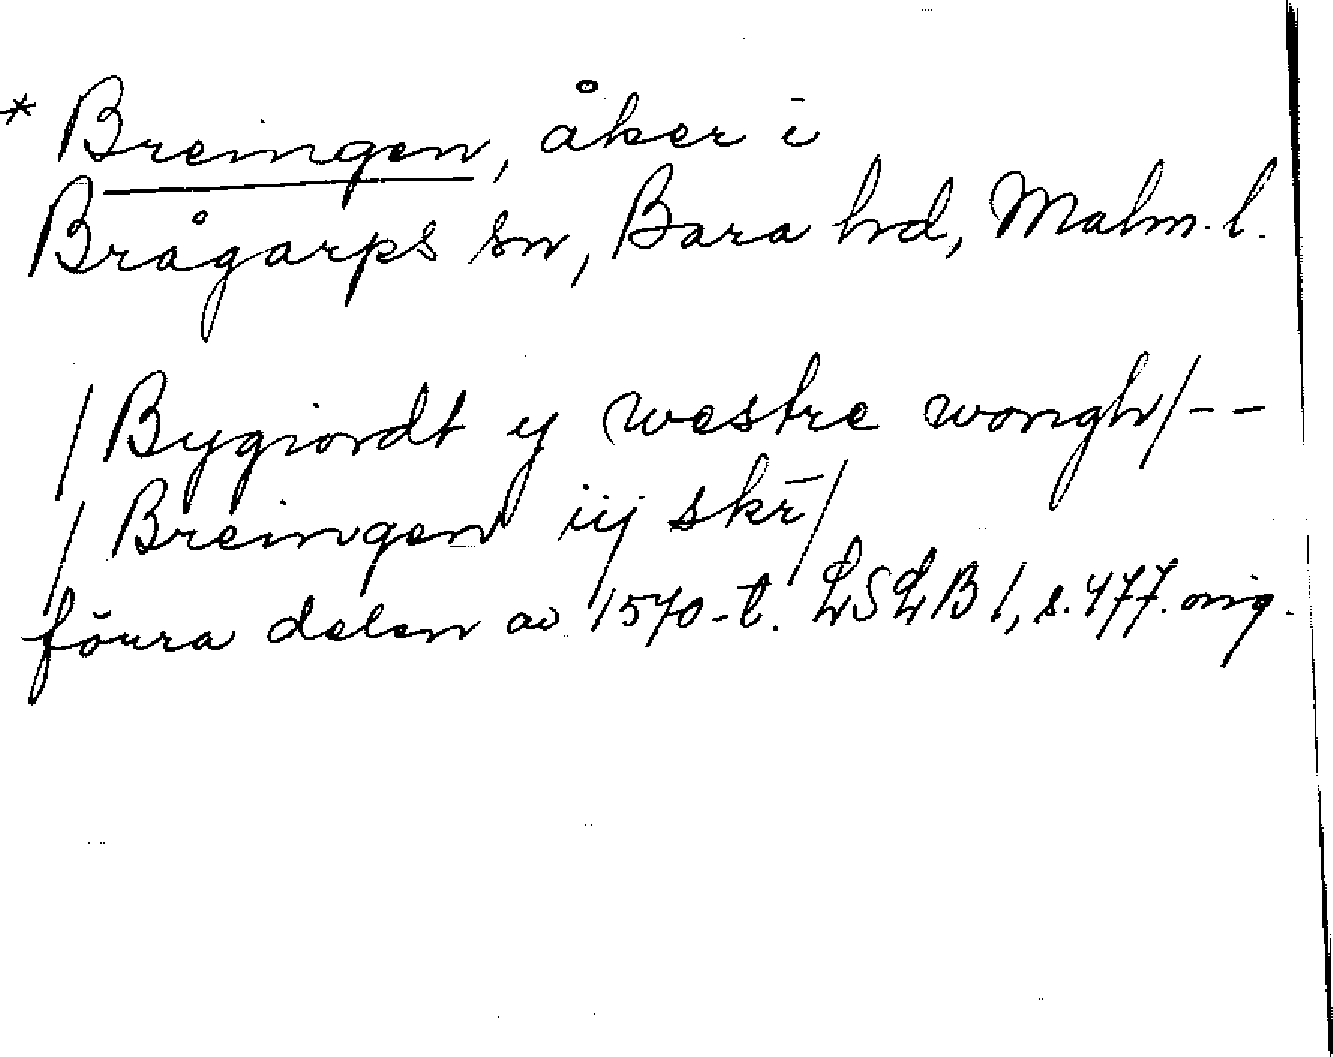 * Breingen, åker i
Brågarps sn, Bara hd, Malm. l.
/Bygiordt y westre wongh/--
/Breingen iij skr̄/
förra delen av 1570-t. LSLB 1, s. 477. orig.